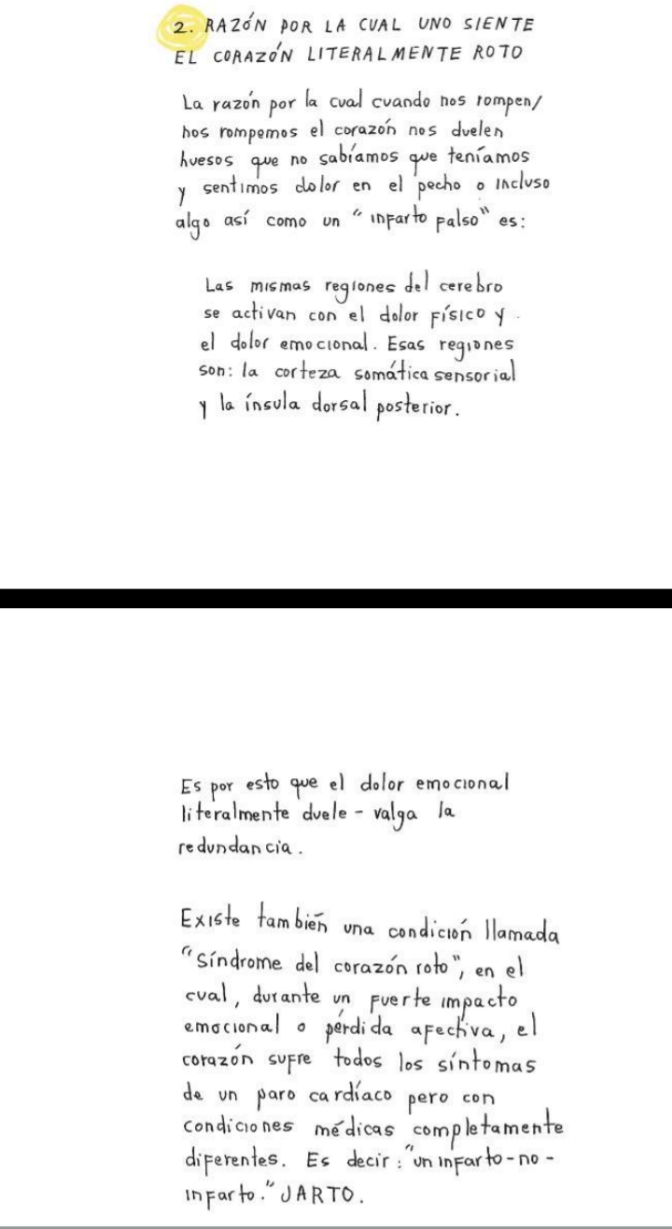 2. RAZÓN POR LA CUAL UNO SIENTE
EL CORAZÓN LITERALMENTE ROTO
La razón por la cual cuando nos rompen/
nos rompemos el corazón nos duelen
huesos que no sabíamos que teníamos
y sentimos dolor en el pecho o incluso
algo así como un "infarto falso" es:
Las mismas regiones del cerebro
se activan con el dolor físico y
el dolor emocional. Esas regiones
son: la corteza somática sensorial
y la ínsula dorsal posterior.
Es por esto que el dolor emocional
literalmente duele - valga la
redundancia.
Existe también una condición llamada
"Síndrome del corazón roto", en el
cual, durante un fuerte impacto
emocional o pérdida afectiva, el
corazón sufre todos los síntomas
de un paro cardíaco pero con
condiciones médicas completamente
diferentes. Es decir: "un infarto-no-
infarto." JARTO.